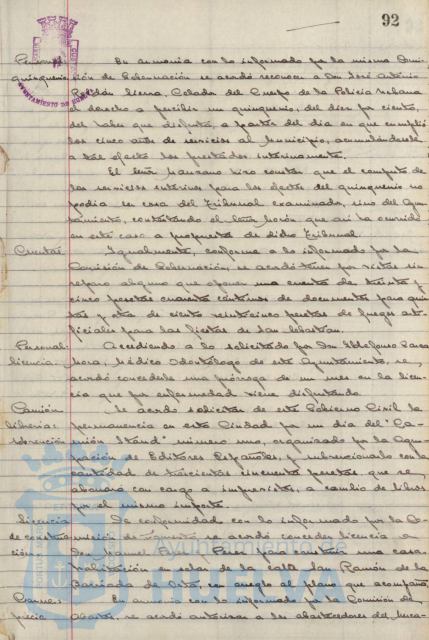 92
Personal En armonía con lo informado por la misma Comi-
quinquenio sión de Gobernación se acordó reconocer a Don José Antonio
Roldán Sierra, Celador del Cuerpo de la Policía Urbana
el derecho a percibir un quinquenio, del diez por ciento,
del haber que disfruta, a partir del día en que cumplió
los cinco años de servicios al Municipio, acumulándosele
a tal efecto los prestados interinamente.
El señor Manzano hizo constar que el computo de
los servicios interinos para los efectos del quinquenio no
podía ser cosa del Tribunal examinador, sino del Ayun-
tamiento, contestando el señor Morón que así ha ocurrido
en este caso a propuesta de dicho Tribunal.
Cuentas Igualmente, conforme a lo informado por la
Comisión de Gobernación, se acordó tener por vistas sin
reparo alguno que oponer una cuenta de treinta y
cinco pesetas cuarenta céntimos de documentos para quin-
tas y otra de ciento veinticinco pesetas de fuegos arti-
ficiales para las fiestas de San Sebastián.
Personal- Accediendo a lo solicitado por Don Ildefonso
licencia Mora, Médico Odontólogo de este Ayuntamiento, se
acordó concederle una prórroga de un mes en la licen-
cia que por enfermedad viene disfrutando.
Camión Se acordó solicitar de este Gobierno Civil la
librería- permanencia en esta Ciudad por un día del "Ca-
subvención mión Stand" número uno, organizado por la Agru-
pación de Editores Españoles, y subvencionarlo con la
cantidad de trescientas cincuenta pesetas que se
abonará con cargo a imprevistos, a cambio de libros
por el mismo importe.
Licencia De conformidad con lo informado por la Co-
de construc- misión de Fomento, se acordó conceder licencia a
ción Don Manuel Pérez para construir una casa
habitación en solar de la calle San Ramón de la
Barriada de con arreglo al plano que acompaña
Carnes- En armonía con lo informado por la Comisión de
precio Abastos, se acordó autorizar a los abastecedores del Merca-
Ayuntamiento de
HUELVA